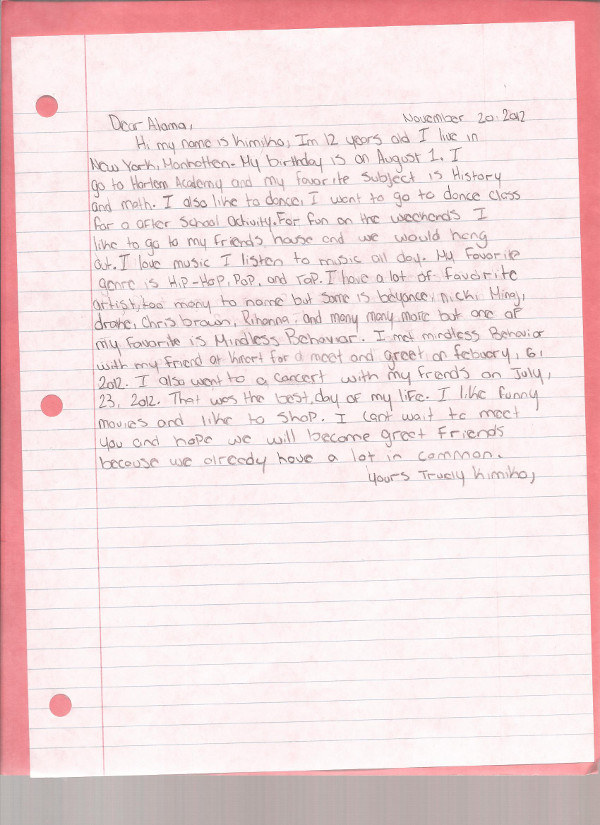 Dear Alama,
November 20, 2012
Hi my name is Kimiko, Im 12 years old I live in
New York, Manhatten. My birthday is on August 1. I
go to Harlem Academy and my favorite subject is History
and math. I also like to dance, I want to go to dance class
for a after school activity. For fun on the weekends I
like to go to my friends house and we would hang
out. I love music I listen to music all day. My favorite
genre is Hip-Hop, Pop, and rap. I have a lot of favorite
artist, too many to name but some is beyonce, nicki Minaj,
drake, Chris brown, Rihanna, and many many more but one of
my favorite is Mindless Behavior. I met mindless Behavior
with my friend at for a meet and greet on febuary, 6,
2012. I also went to a concert with my frends on July,
23, 2012. That was the best day of my life. I like funny
movies and like to shop. I cant wait to meet
you and hope we will become great friends
because we already have a lot in common.
Yours Truely Kimiko,